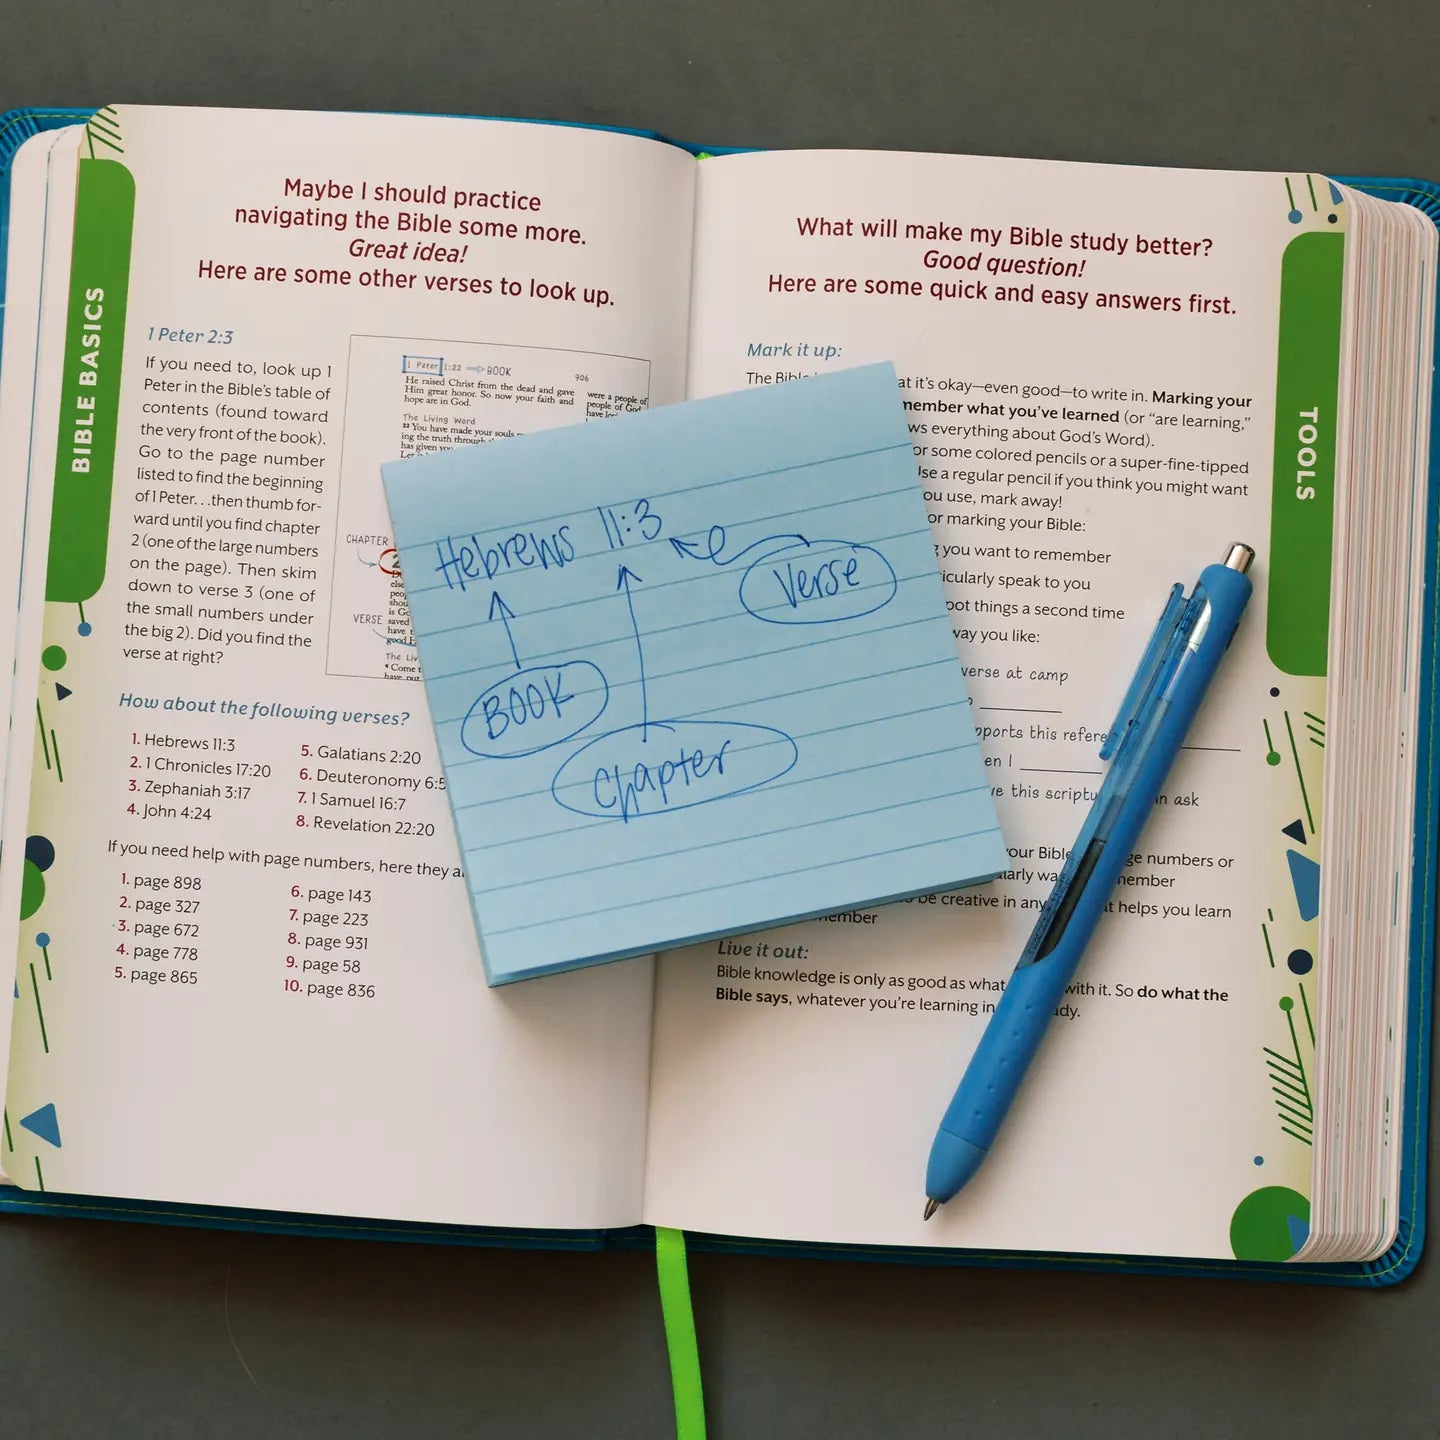 BIBLE BASICS
Maybe I should practice
navigating the Bible some more.
Great idea!
Here are some other verses to look up.
1 Peter 2:3
If you need to, look up 1
Peter in the Bible's table of
contents (found toward
the very front of the book).
Go to the page number
listed to find the beginning
of 1 Peter...then thumb for-
ward until you find chapter
2 (one of the large numbers
on the page). Then skim
down to verse 3 (one of
the small numbers under
the big 2). Did you find the
verse at right?
1 Peter 1:22 BOOK 906
He raised Christ from the dead and gave
Him great honor. So now your faith and
hope are in God.
The Living Word
22 You have made your souls
ing the truth through
has given you
were a people of
people of God
CHAPTER
2
VERSE
saved
have
good
The Liv
4 Come
have
How about the following verses?
1. Hebrews 11:3
2. 1 Chronicles 17:20
3. Zephaniah 3:17
4. John 4:24
5. Galatians 2:20
6. Deuteronomy 6:5
7. 1 Samuel 16:7
8. Revelation 22:20
If you need help with page numbers, here they
1. page 898
2. page 327
3. page 672
4. page 778
5. page 865
6. page 143
7. page 223
8. page 931
9. page 58
10. page 836
Hebrews 11:3
Verse
BOOK
Chapter
What will make my Bible study better?
Good question!
Here are some quick and easy answers first.
Mark it up:
The Bible
at it's okay—even good—to write in. Marking your
member what you've learned (or "are learning,"
ws everything about God's Word).
or some colored pencils or a super-fine-tipped
Use a regular pencil if you think you might want
you use, mark away!
for marking your Bible:
you want to remember
ticularly speak to you
pot things a second time
way you like:
verse at camp
pports this refere
en I
ve this scriptu n ask
our Bible ge numbers or
larly wa member
be creative in any t helps you learn
member
Live it out:
Bible knowledge is only as good as what with it. So do what the
Bible says, whatever you're learning in dy.
TOOLS